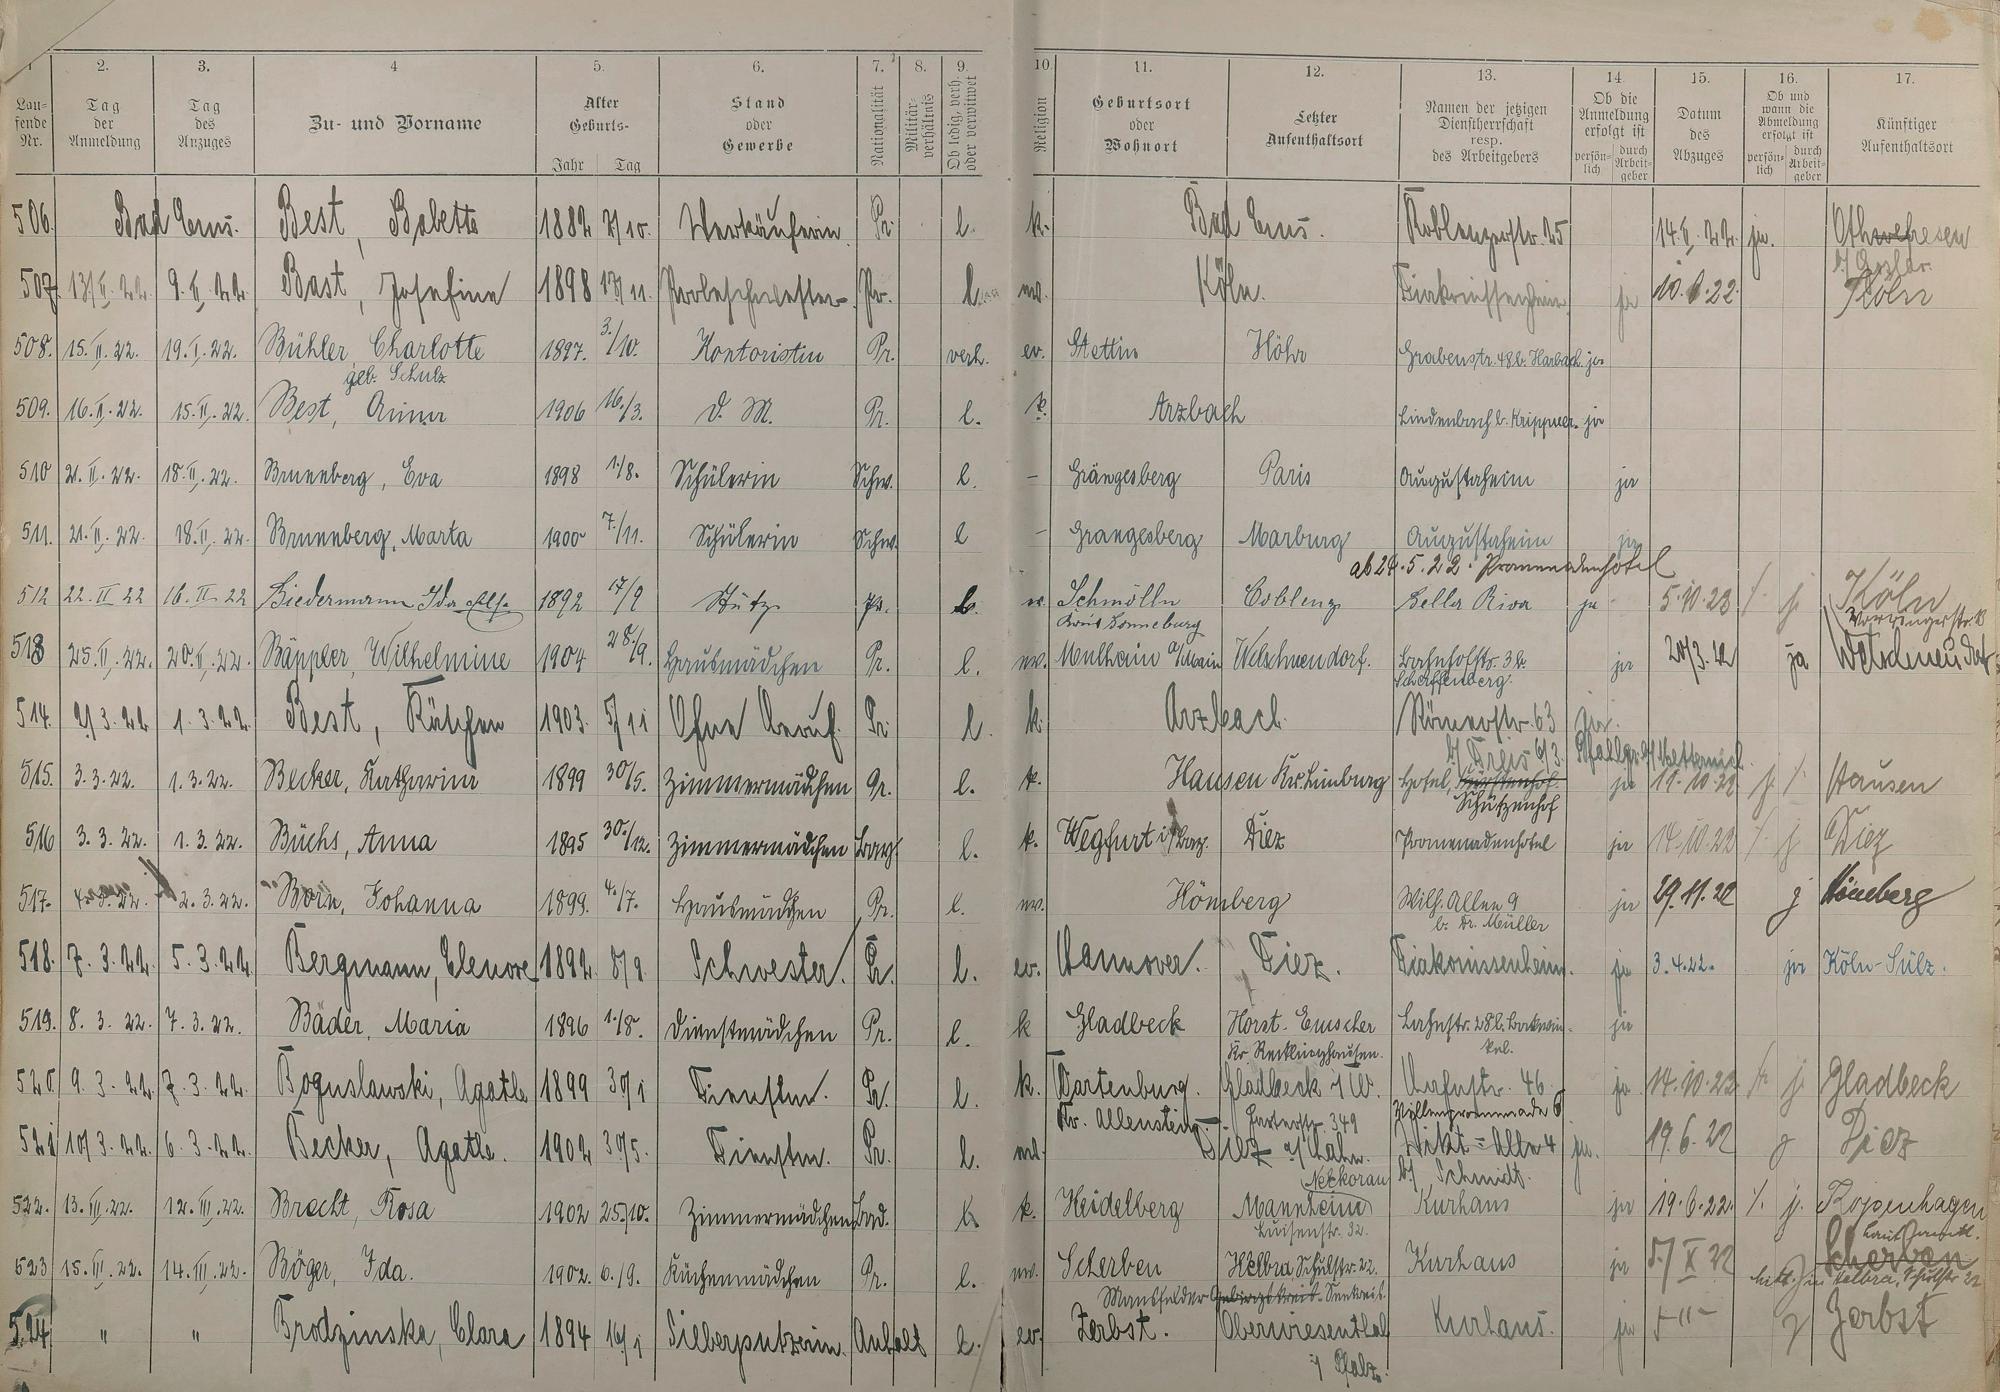 1 2. 3. 4 5. 6. 7. 8. 9. 10 11. 12. 13. 14 15. 16. 17.
Lau-fende Nr. Tag der Anmeldung Tag des Anzuges Zu- und Vorname Alter Geburts- Jahr Tag Stand oder Gewerbe Nationalität Militär-verhältnis Ob ledig, verh. oder verwitwet Religion Geburtsort oder Wohnort Letzter Aufenthaltsort Namen der jetzigen Dienstherrschaft resp. des Arbeitgebers Ob die Anmeldung erfolgt ist persön-lich durch Arbeit-geber Datum des Abzuges Ob und wann die Abmeldung erfolgt ist persön-lich durch Arbeit-geber Künftiger Aufenthaltsort
506. Bad Ems. Best, Babette 1882 2/10. Verkäuferin. Pr. l. k. Bad Ems. Koblenzerstr. 25 14.II.22. ja.
507. 13/II.22. 9.II.22. Bast, Josefine 1898 13/11. Probeschwester Pr. l. ev. Köln. Diakonissenheim ja 10.6.22. Köln
508. 15.II.22. 19.I.22. Bühler, Charlotte 1897. 3./10. Kontoristin Pr. verh. ev. Stettin Höhr Grabenstr. 48 b. Harbach ja
geb. Schulz
509. 16.II.22. 15.II.22. Best, Anna 1906 16./3. d. M. Pr. l. k. Arzbach Lindenbach b. Krippner. ja
510 21.II.22. 18.II.22. Brunnberg, Eva 1898 1./8. Schülerin Schw. l. – Grängesberg Paris Augustaheim ja
511. 21.II.22. 18.II.22. Brunnberg, Marta 1900 7./11. Schülerin Schw. l – Grangesberg Marburg Augustaheim ja
ab 24.5.22. Promenadenhotel
512 22.II 22 16.II 22 Biedermann Ida 1892 17/9 Stütze Pr. l. ev. Schmölln Coblenz Bella Riva ja 5.10.23 j Köln
513 25.II.22. 20.II.22. Bäppler, Wilhelmine 1904 28./9. Hausmädchen Pr. l. ev. Mülheim a/Main Welschneudorf. Bahnhofstr. 3 b. ja 20/3.22 ja Welschneudorf
Scheffenberg.
514. 2/3.22 1.3.22. Best, Käthchen 1903. 5/11 Ohne Beruf. Pr l. k. Arzbach. Römerstr. 63 ja.
515. 3.3.22. 1.3.22. Becker, Katharina 1899 30/5. Zimmermädchen Pr. l. k. Hausen Krs. Limburg Hotel Fürstenhof ja 19.10.22 j. Hausen
Schützenhof
516 3.3.22. 1.3.22. Büchs, Anna 1895 30./12. Zimmermädchen Bay. l. k. Wegfurt i/Bay. Diez Promenadenhotel ja 14.10.22 j Diez
517. 4.3.22. 2.3.22. Born, Johanna 1899. 4./7. Hausmädchen Pr. l. ev. Hömberg Wilh. Allee 9 ja 29.11.22 j Hömberg
b. Dr. Müller
518. 7.3.22. 5.3.22. Bergmann, Elenore 1892 8/9. Schwester. Pr. l. ev. Hannover. Diez. Diakonissenheim. ja 3.4.22. ja Köln-Sülz.
519. 8.3.22. 7.3.22. Bäder, Maria 1896 1./8. Dienstmädchen Pr. l. k Gladbeck Horst-Emscher Lahnstr. 28 b. ja
Kr. Recklinghausen.
520. 9.3.22. 7.3.22. Boguslawski, Agathe 1899 30/1 Dienstm. Pr. l. k. Wartenburg. Gladbeck i/W. 46 ja 14.10.22 j Gladbeck
Kr. Allenstein. 349 Villenpromenade 6
521 10/3.22. 6.3.22. Becker, Agathe. 1902 30/5. Dienstm. Pr. l. Diez a/Lahn. Vikt-Allee 4 ja. 19.6.22 j Diez
Neckorau b/ Schmidt.
522. 13.III.22. 12.III.22. Brecht, Rosa 1902 25./10. Zimmermädchen Bad. k. Heidelberg Mannheim Kurhaus ja 19.6.22. j. Kopenhagen
Luisenstr. 32.
523 15.III.22. 14.III.22. Böger, Ida. 1902. 6./9. Küchenmädchen Pr. l. ev. Scherben Helbra Schulstr. 22. Kurhaus ja 5/X 22 j Scherben
Mansfelder Gebirgskreis Seekreis.
524 " " Brodzinska, Clara 1894 16/1 Silberputzerin. Anhalt l. ev. Zerbst. Oberwiesenthal Kurhaus. ja j Zerbst
i/ Pfalz.